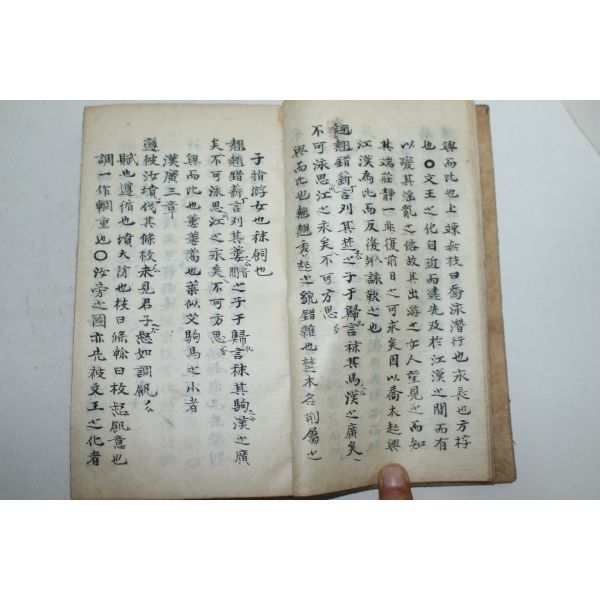 興而比也上竦無枝曰喬泳潛行也永長也方桴
也〇文王之化自近而遠先及於江漢之間而有
以變其淫亂之俗故其出游之女人望見之而知
其端莊靜一非復前日之可求矣因以喬木起興
江漢為比而反復詠歎之也
翹翹錯薪言刈其楚之子于歸言秣其馬漢之廣矣
不可泳思江之永矣不可方思
興而比也翹翹秀起之貌錯雜也楚木名荊屬之
子指游女也秣飼也
翹翹錯薪言刈其蔞之子于歸言秣其駒漢之廣
矣不可泳思江之永矣不可方思
興而比也蔞蔞蒿也葉似艾駒馬之小者
漢廣三章
遵彼汝墳伐其條枚未見君子惄如調飢
賦也遵循也墳大防也枝曰條榦曰枚惄飢意也
調一作輖重也〇汝旁之國亦先被文王之化者